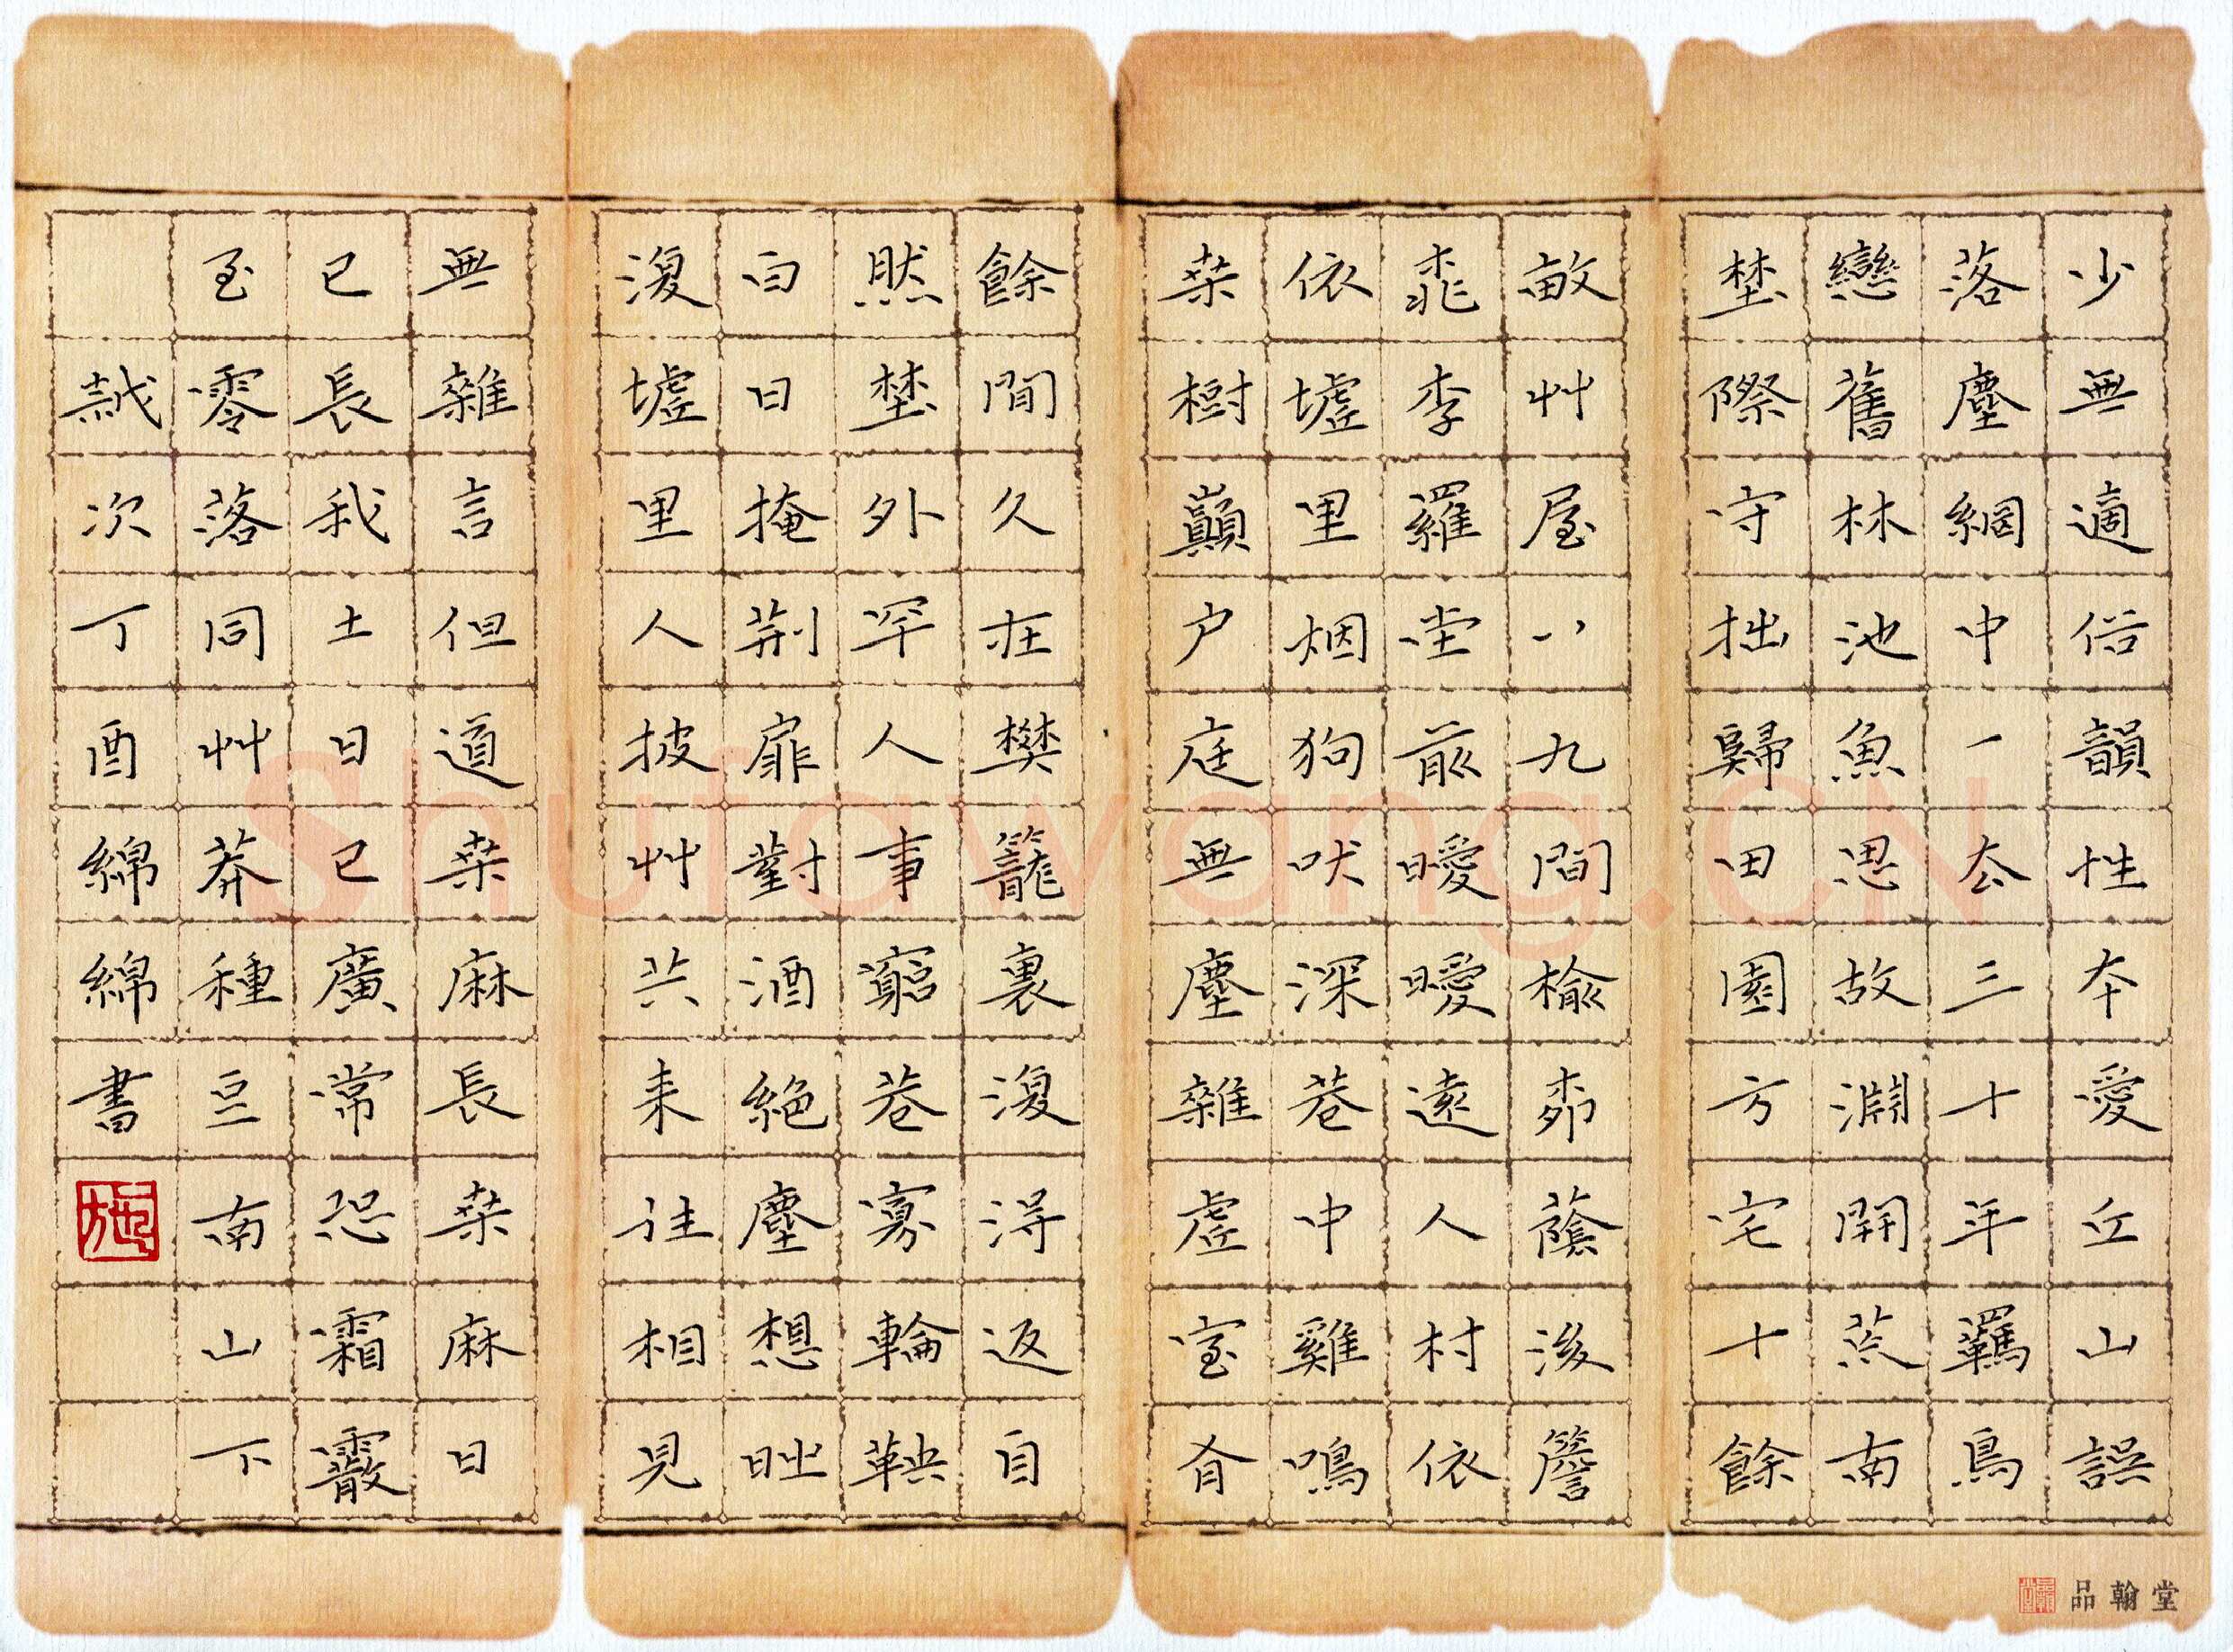 少無適俗韻性本愛丘山誤
落塵網中一去三十年羈鳥
戀舊林池魚思故淵開荒南
埜際守拙歸田園方宅十餘
畝艸屋八九間榆柳蔭後簷
桃李羅堂前曖曖遠人村依
依墟里烟狗吠深巷中雞鳴
桑樹巔户庭無塵雜虛室有
餘閒久在樊籠裏復得返自
然埜外罕人事窮巷寡輪鞅
白日掩荊扉對酒絕塵想時
復墟里人披艸共來往相見
無雜言但道桑麻長桑麻日
已長我土日已廣常恐霜霰
至零落同艸莽種豆南山下
歲次丁酉綿綿書
施
品翰堂
Shufawang.CN